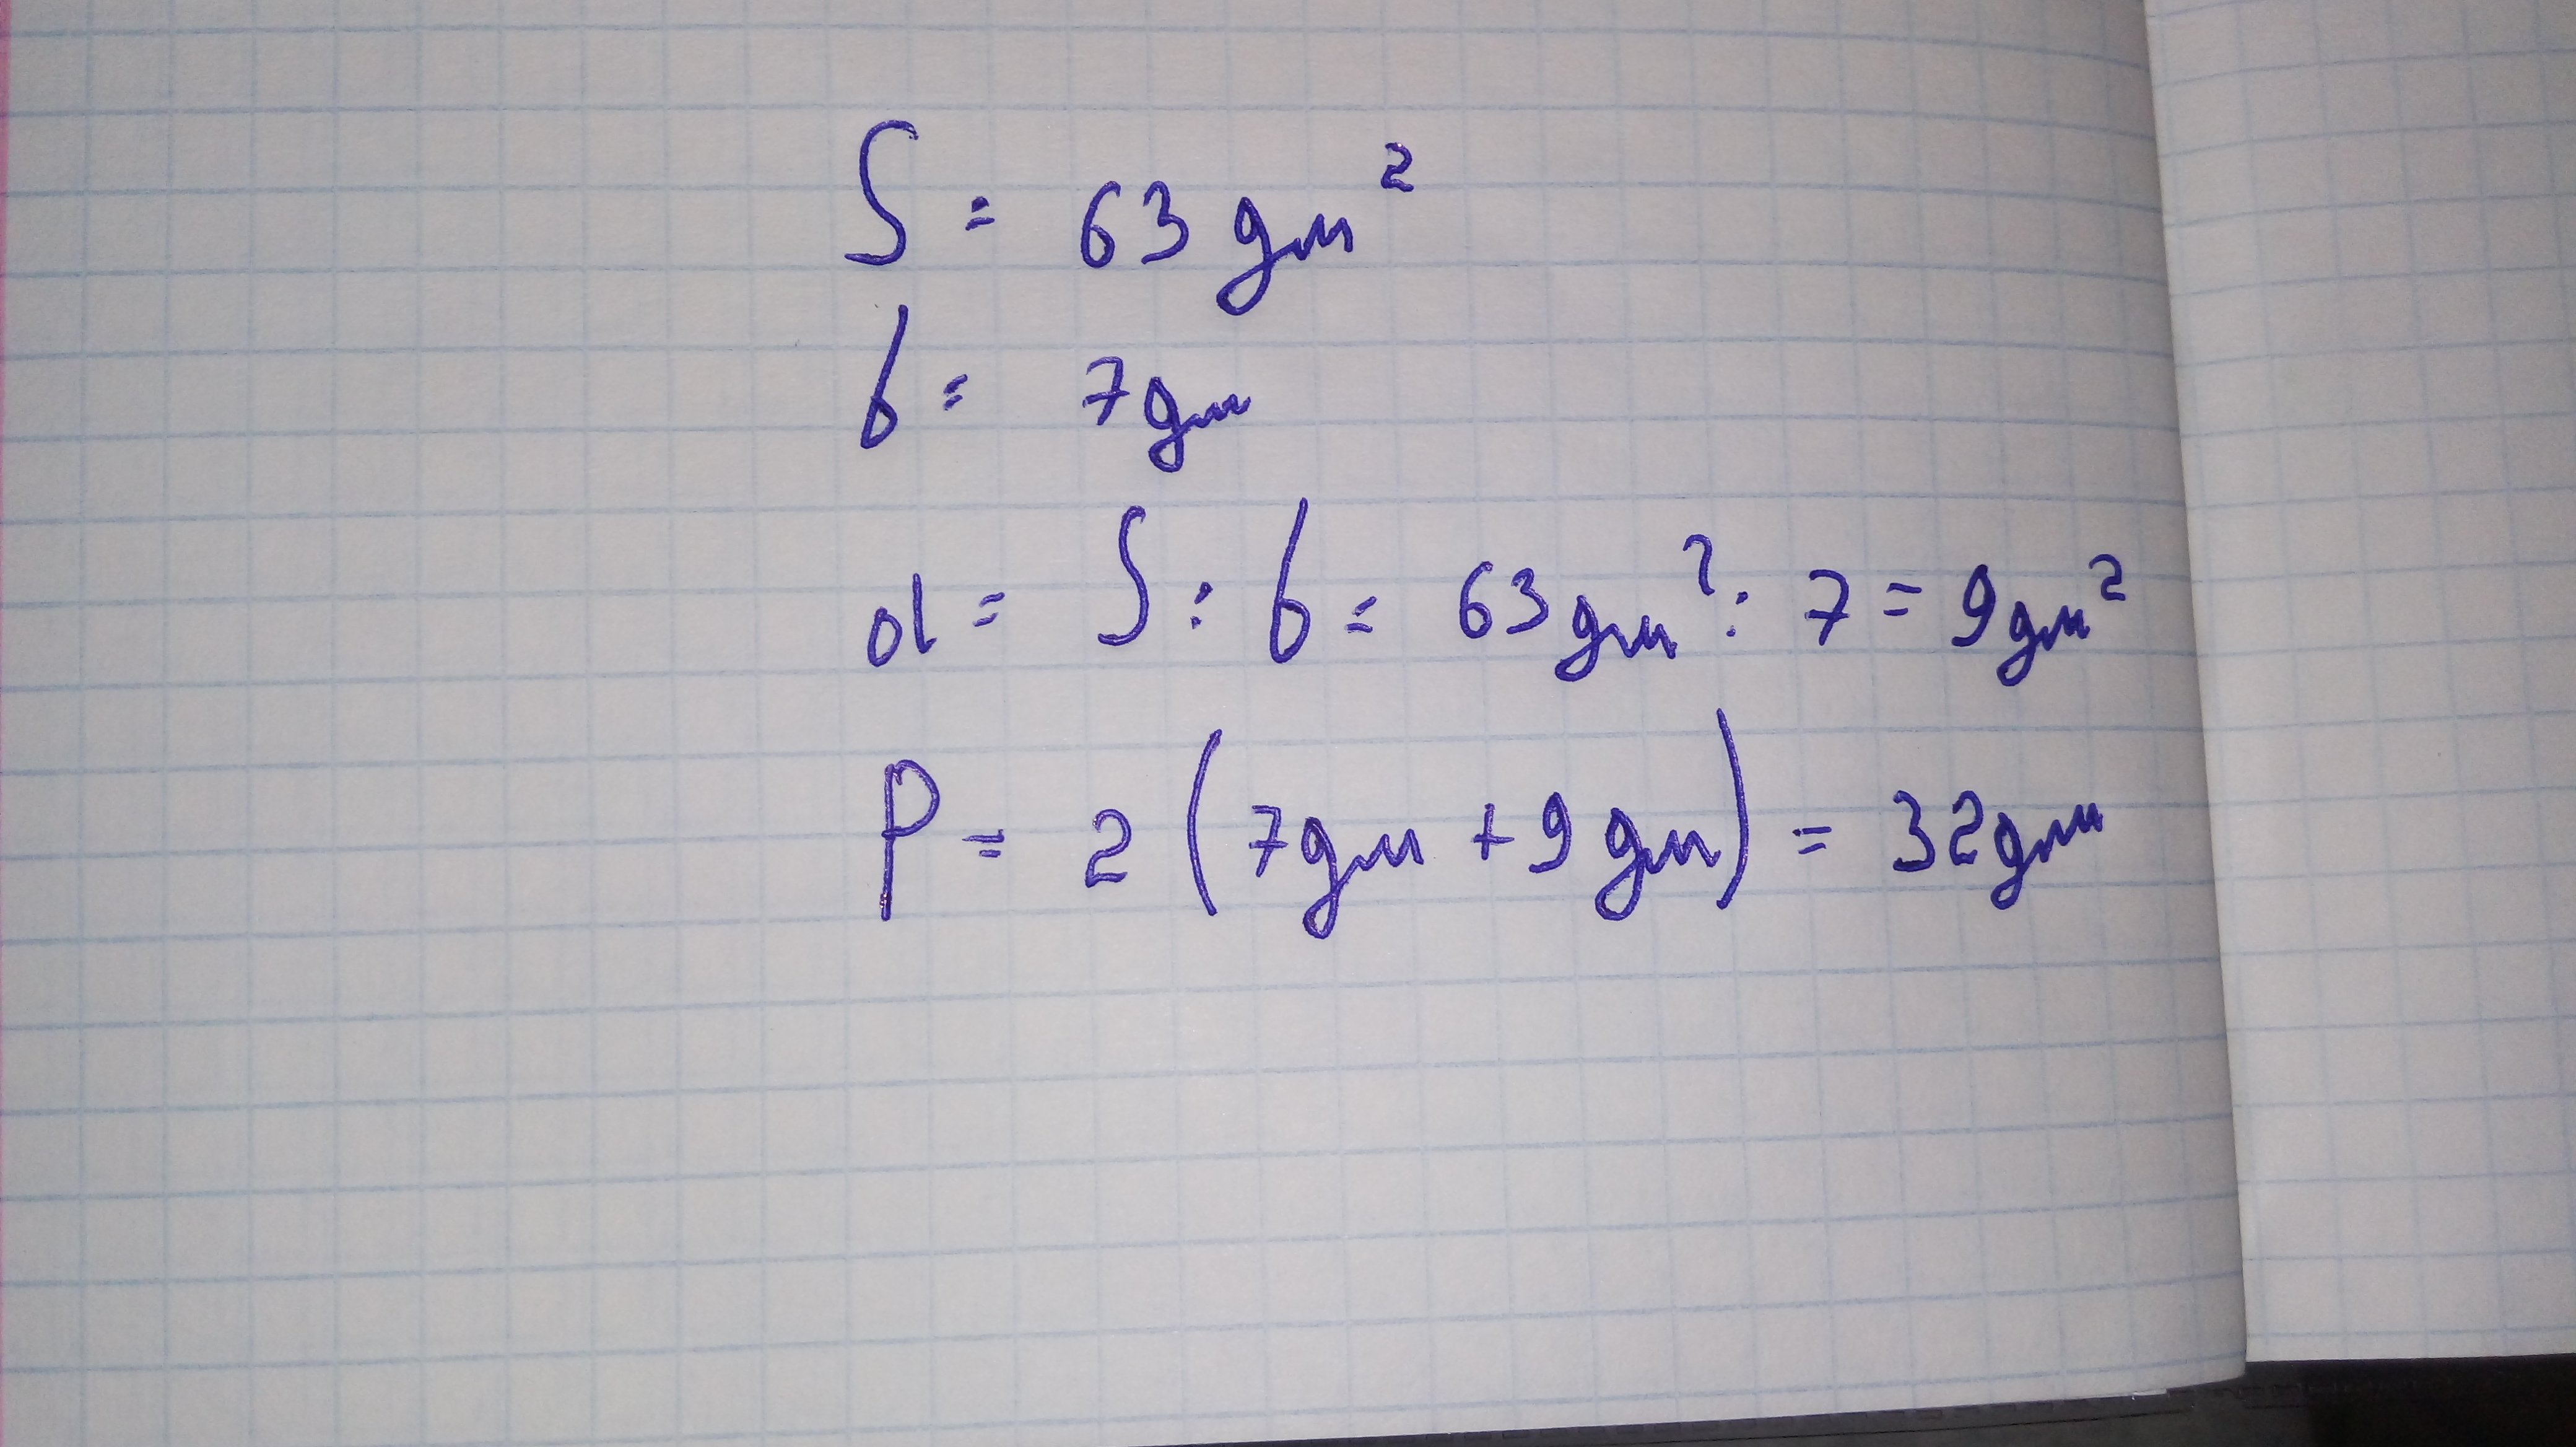 S = 63 дм²
b = 7 дм
a = S : b = 63 дм² : 7 = 9 дм²
P = 2 (7 дм + 9 дм) = 32 дм